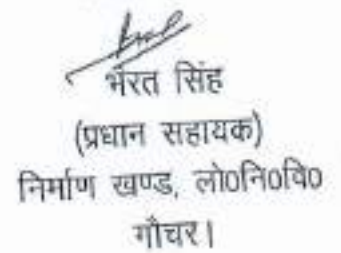 भरत सिंह
(प्रधान सहायक)
निर्माण खण्ड, लो0नि0वि0
गौचर।